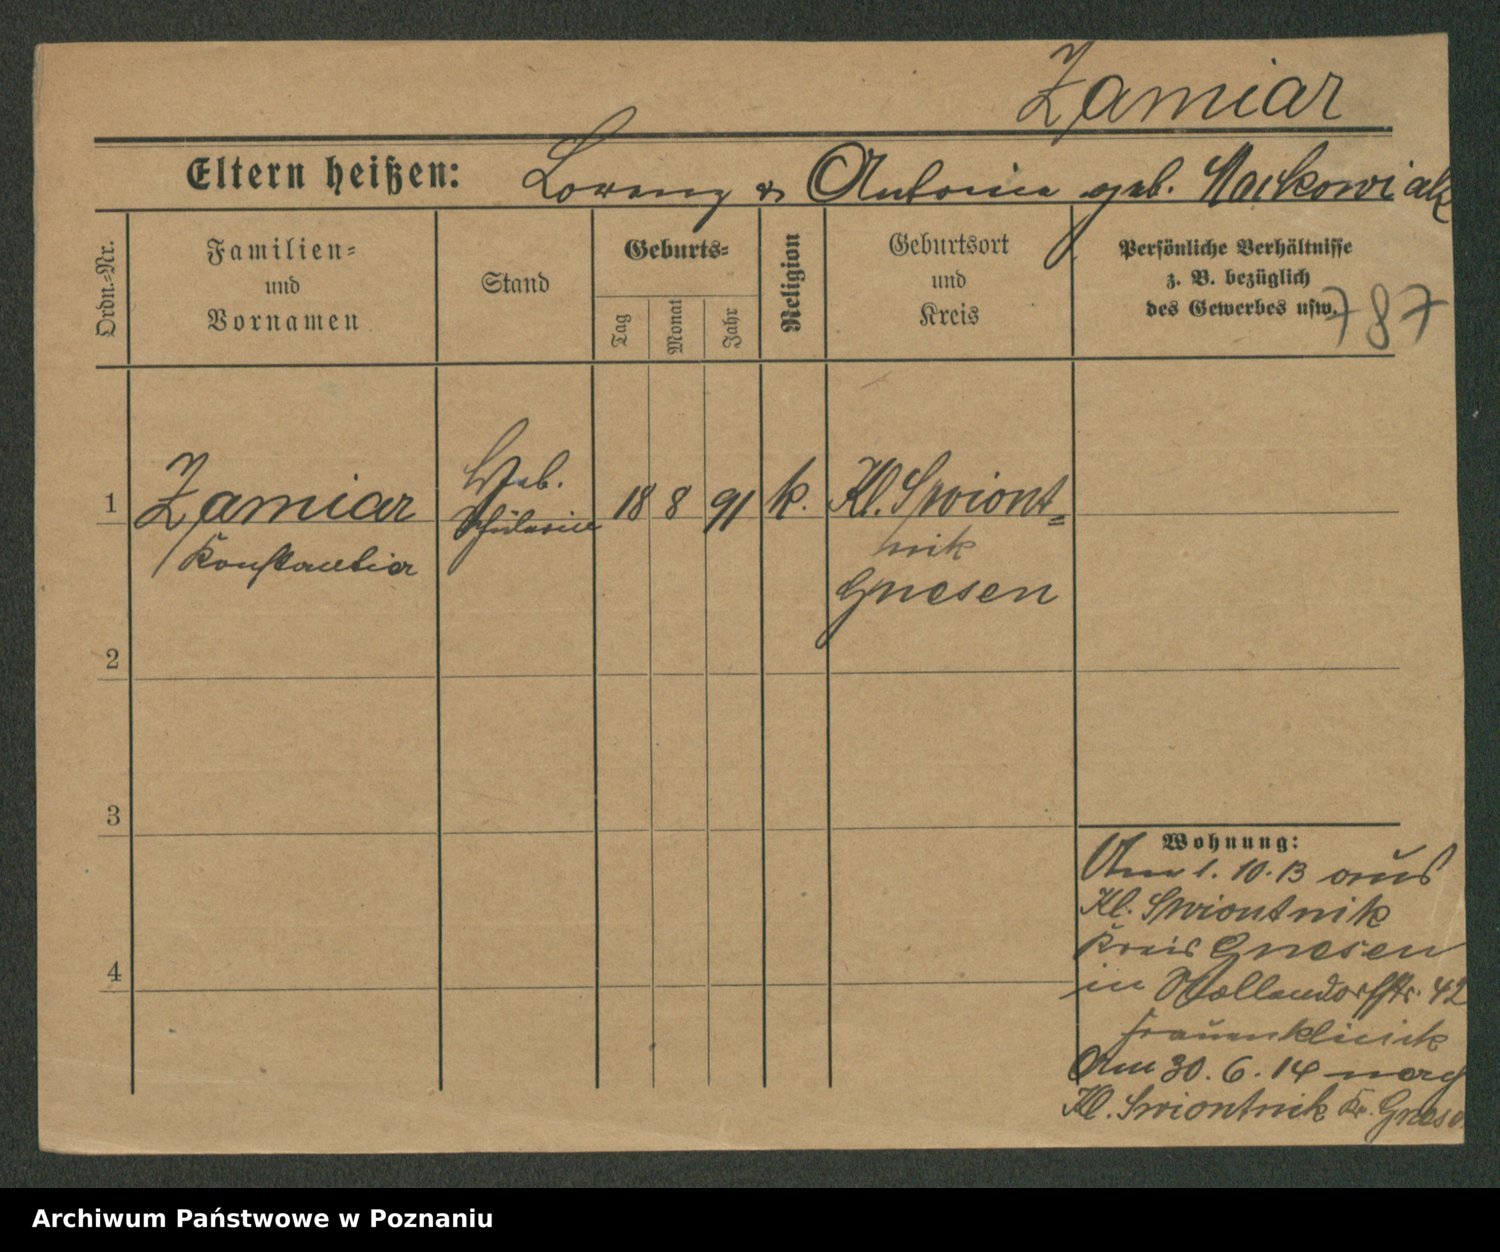 Zamiar
Eltern heißen: Lorenz & Antonie geb. Maćkowiak
Ordn.-Nr.
Familien-
und
Vornamen
Stand
Geburts-
Tag
Monat
Jahr
Religion
Geburtsort
und
Kreis
Persönliche Verhältnisse
z. B. bezüglich
des Gewerbes usw.
787
1 Zamiar Heb. 18 8 91 k. Kl. Swiont=
Schülerin
nik
Gnesen
2
3
4
Wohnung:
Am 1. 10. 13 aus
Kl. Swiontnik
Kreis Gnesen
in 42
Frauenklinick
Am 30. 6. 14 nach
Kl. Swiontnik Kr. Gnesen
Archiwum Państwowe w Poznaniu